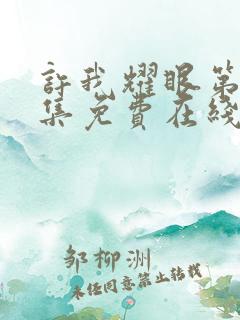 許我耀眼第
集免費在綫
邹柳洲
未经同意禁止转载